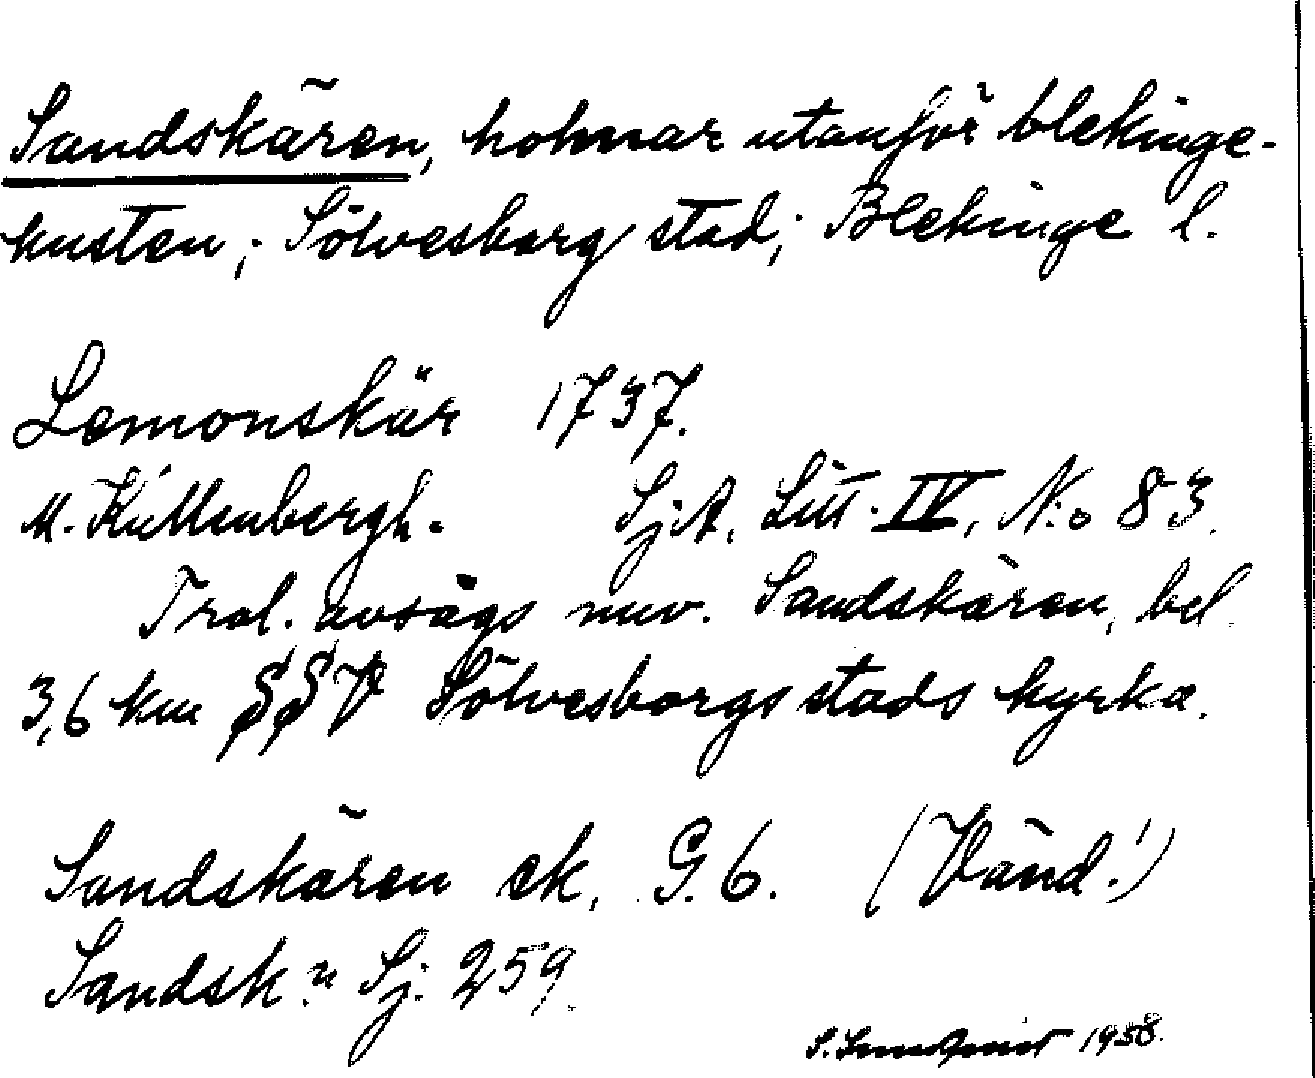 Sandskären, holmar utanför blekinge-
kusten; Sölvesborg stad; Blekinge l.
Lemonskär 1737.
M. Küllenbergh. SjA. Litt. IV, N:o 83.
Trol. avsägs nuv. Sandskären, bel.
3,6 km SSV Sölvesborgs stads kyrka.
Sandskären ek. G. 6. (Vänd!)
Sandsk:n Sj. 259.
1958.